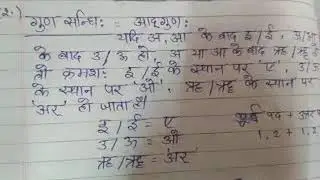 2.) गुण सन्धि: = आद्गुणः
यदि अ, आ के बाद इ/ई, अ/आ
के बाद उ/ऊ हो, अ या आ के बाद ऋ/ॠ हो
तो क्रमशः इ/ई के स्थान पर 'ए', उ/ऊ
के स्थान पर 'ओ', ऋ/ॠ के स्थान पर
'अर' हो जाता है।
इ/ई = ए पूर्व पद + उत्तर
उ/ऊ = ओ 1, 2 + 1,
ऋ/ॠ = 'अर'